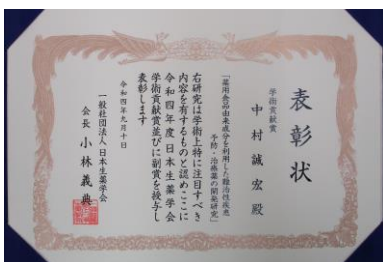 表彰状
学術貢献賞
中村誠宏 殿
「薬用食品由来成分を利用した難治性疾患
予防・治療薬の開発研究」
右研究は学術上特に注目すべき
内容を有するものと認めここに
令和四年度日本生薬学会
学術貢献賞並びに副賞を授与し
表彰します
令和四年九月十日
一般社団法人日本生薬学会
会長 小林義典